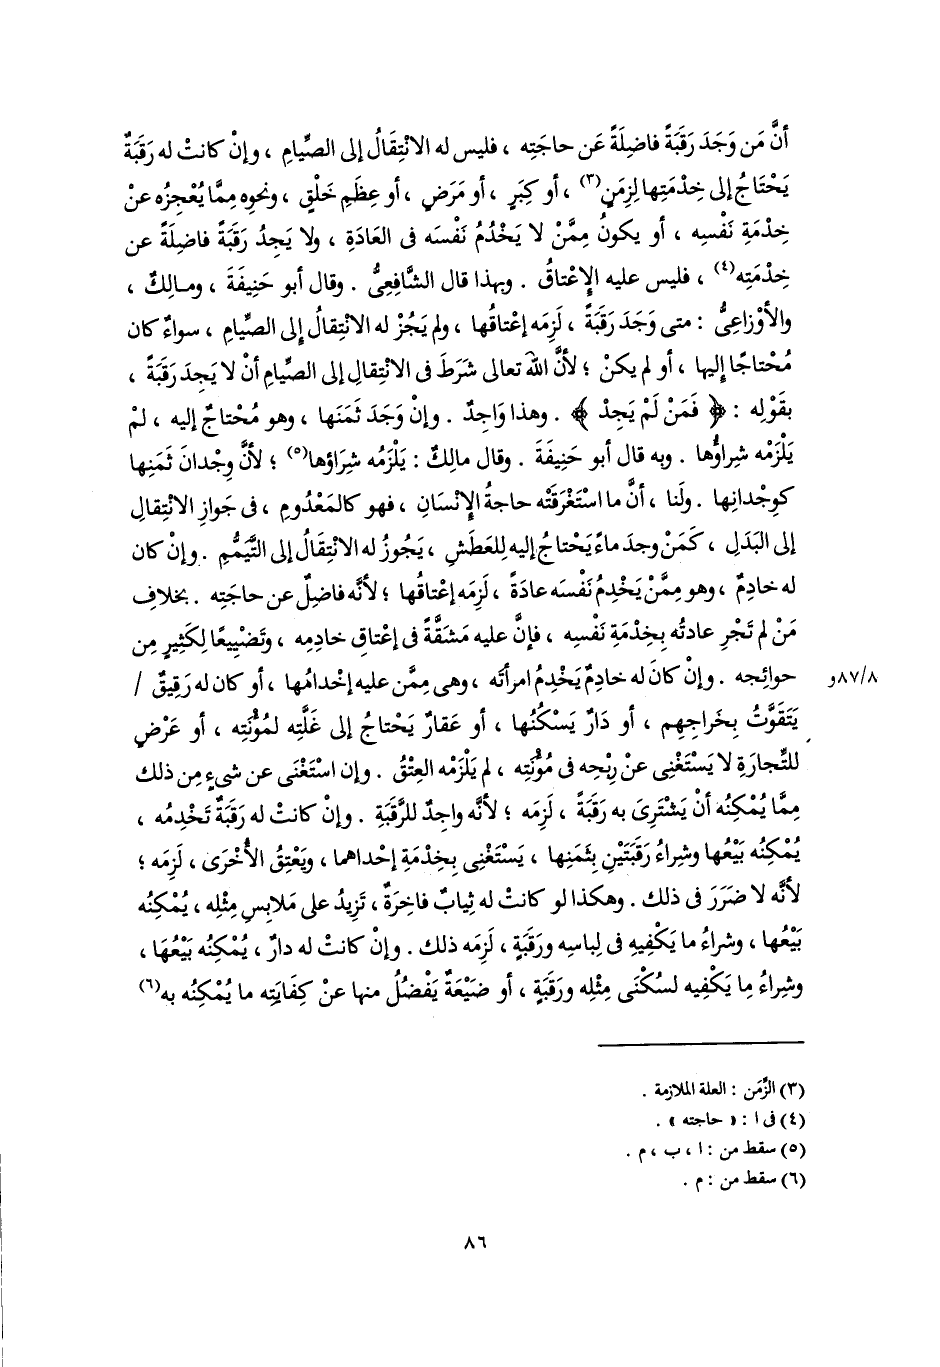 أنَّ مَن وَجَدَ رَقَبَةً فاضِلَةً عَن حاجَتِه ، فليس له الانْتِقَالُ إلى الصِّيامِ ، وإنْ كانتْ له رَقَبَةٌ
يَحْتَاجُ إلى خِدْمَتِها لِزمَنٍ(٣) ، أو كِبَرٍ ، أو مَرَضٍ ، أو عِظَمِ خَلْقٍ ، ونحوِه مِمَّا يُعْجِزُه عنْ
خِدْمَةِ نَفْسِه ، أو يكونُ مِمَّنْ لا يَخْدُمُ نَفْسَه فى العَادَةِ ، ولا يَجِدُ رَقَبَةً فاضِلَةً عن
خِدْمَتِه(٤) ، فليس عليه الإعْتاقُ . وبهذا قال الشَّافِعِىُّ . وقال أبو حَنِيفَةَ ، ومـالِكٌ ،
والأوْزاعِىُّ : متى وَجَدَ رَقَبَةً ، لَزِمَه إعْتاقُها ، ولم يَجُزْ له الانْتِقالُ إلى الصِّيامِ ، سواءٌ كان
مُحْتاجًا إليها ، أو لم يكنْ ؛ لأنَّ اللهَ تعالى شَرَطَ فى الانْتِقالِ إلى الصِّيامِ أنْ لا يَجِدَ رَقَبَةً ،
بقَوْلِه : ﴿ فَمَنْ لَمْ يَجِدْ ﴾ . وهذا وَاجِدٌ . وإنْ وَجَدَ ثَمَنَها ، وهو مُحْتاجٌ إليه ، لمْ
يَلْزَمْه شِراؤُها . وبه قال أبو حَنِيفَةَ . وقال مالِكٌ : يَلْزَمُه شِرَاؤها(٥) ؛ لأنَّ وِجْدانَ ثَمَنِها
كوِجْدانِها . ولَنا ، أنَّ ما اسْتَغْرَقَتْه حاجةُ الإنْسَانِ ، فهو كالمَعْدُومِ ، فى جَوازِ الانْتِقالِ
إلى البَدَلِ ، كَمَنْ وجد ماءً يَحْتاجُ إليه لِلعَطَشِ ، يَجُوزُ له الانْتِقَالُ إلى التَّيَمُّمِ . وإنْ كان
له خادِمٌ ، وهو مِمَّنْ يَخْدِمُ نَفْسَه عادَةً ، لَزِمَه إعْتاقُها ؛ لأنَّه فاضِلٌ عن حاجَتِه . بخلافِ
مَنْ لم تَجْرِ عادتُه بِخِدْمَةِ نَفْسِه ، فإنَّ عليه مَشَقَّةً فى إعْتاقِ خادِمِه ، وتَضْيِيعًا لِكَثِيرٍ مِن
حوائِجِه . وإنْ كانَ له خادِمٌ يَخْدِمُ امرأتَه ، وهى مِمَّن عليه إخْدامُها ، أو كان له رَقِيقٌ /
٨٧/٨و
يَتَقَوَّتُ بِخَراجِهِم ، أو دَارٌ يَسْكُنُها ، أو عَقارٌ يَحْتاجُ إلى غَلَّتِه لمُؤْنَتِه ، أو عَرْضٍ
للتِّجارَةِ لا يَسْتَغْنِى عنْ رِبْحِه فى مُؤْنَتِه ، لم يَلْزَمْه العِتْقُ . وإن اسْتَغْنَى عن شىءٍ مِن ذلك
مِمَّا يُمْكِنُه أنْ يَشْتَرِىَ به رَقَبَةً ، لَزِمَه ؛ لأنَّه واجِدٌ للرَّقَبَةِ . وإنْ كانتْ له رَقَبَةٌ تَخْدِمُه ،
يُمْكِنُه بَيْعُها وشِراءُ رَقَبَتَيْنِ بِثَمَنِها ، يَسْتَغْنِى بِخِدْمَةِ إحْداهما ، ويَعْتِقُ الأُخْرَى ، لَزِمَه ؛
لأنَّه لا ضَرَرَ فى ذلك . وهكذا لو كانتْ له ثِيابٌ فاخِرَةٌ ، تَزِيدُ على مَلابِسِ مِثْلِه ، يُمْكِنُه
بَيْعُها ، وشراءُ ما يَكْفِيهِ فى لِباسِه ورَقَبَةٍ ، لَزِمَه ذلك . وإنْ كانتْ له دارٌ ، يُمْكِنُه بَيْعُهَا ،
وشِراءُ مِا يَكْفِيه لسُكْنَى مِثْلِه ورَقَبَةٍ ، أو ضَيْعَةٌ يَفْضُلُ منها عنْ كِفَايَتِه ما يُمْكِنُه به(٦)
(٣) الزَّمَن : العلة الملازمة .
(٤) فى ا : « حاجته » .
(٥) سقط من : ا ، ب ، م .
(٦) سقط من : م .
٨٦